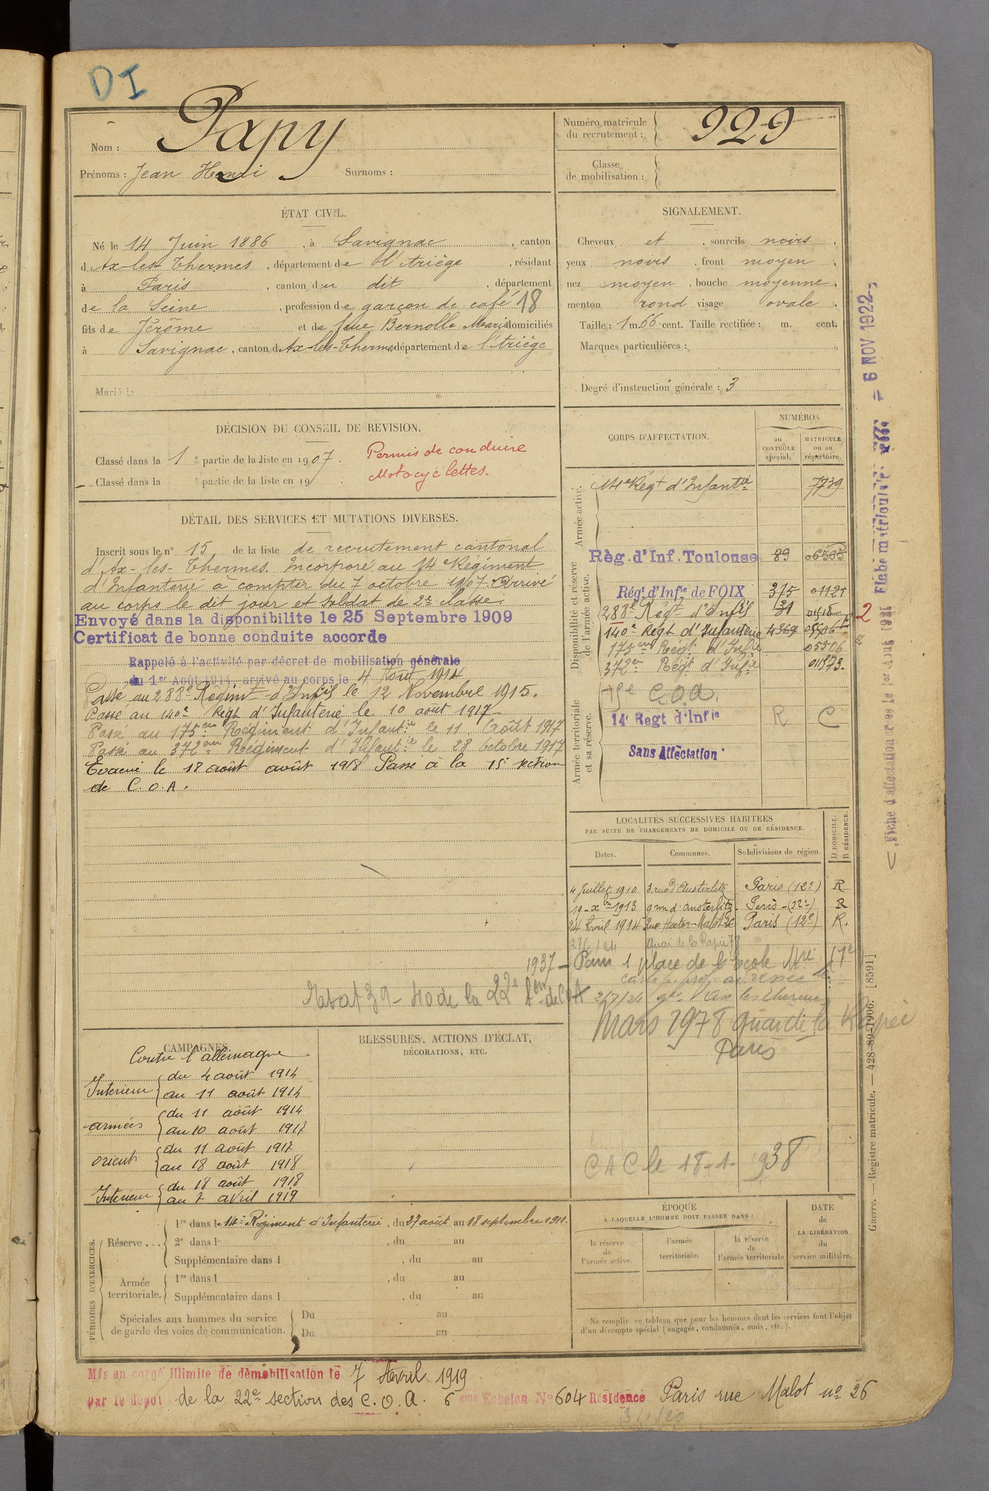 DI
Nom : Papy
Prénoms : Jean Henri Surnoms :
Numéro matricule du recrutement : 929
Classe de mobilisation :
ÉTAT CIVIL.
Né le 14 Juin 1886, à Savignac, canton
d'Ax-les-Thermes, département de l'Ariège, résidant
à Paris, canton du dit, département
de la Seine, profession de garçon de café 18
fils de Jérôme et de feue Bernolle Marie domiciliés
à Savignac, canton d'Ax-les-Thermes département de l'Ariège
Marié
SIGNALEMENT.
Cheveux et, sourcils noirs.
yeux noirs, front moyen.
nez moyen, bouche moyenne.
menton rond visage ovale.
Taille : 1 m. 66 cent. Taille rectifiée : m. cent.
Marques particulières :
Degré d'instruction générale : 3
DÉCISION DU CONSEIL DE REVISION.
Classé dans la 1 e partie de la liste en 1907.
Classé dans la e partie de la liste en 19
Permis de conduire
Motocyclettes.
DÉTAIL DES SERVICES ET MUTATIONS DIVERSES.
Inscrit sous le n° 15 de la liste de recrutement cantonal
d'Ax-les-Thermes. Incorporé au 14 Régiment
d'Infanterie à compter du 7 octobre 1907. Arrivé
au corps le dit jour et soldat de 2e classe.
Envoyé dans la disponibilite le 25 Septembre 1909
Certificat de bonne conduite accorde
Rappelé à l'activité par décret de mobilisation générale
du 1er Août 1914, arrivé au corps le 4 Août 1914
Passé au 288e Régimt d'Infie le 12 Novembre 1915.
Passé au 140e Regt d'Infanterie le 10 aout 1917
Passé au 175ème Régiment d'Infantie le 11 Août 1917
Passé au 372ème Regiment d'Infantie le 28 Octobre 1917
Évacué le 18 août août 1918 Passé à la 15e section
de C.O.A.
CORPS D'AFFECTATION.
NUMÉROS
au CONTRÔLE spécial.
MATRICULE ou au répertoire.
Armée active.
14e Régt d'Infantie 7739
Disponibilité et réserve de l'armée active.
Règ. d'Inf. Toulouse 89
Régt d'Infie de FOIX 375 01121
288e Régt d'Infie 31 0418
140e Regt d'Infanterie 4369 05506
175ème Regt d'Infie 05506
372ème Regt d'Infie 01873
2
Armée territoriale et sa réserve.
15e C.O.A.
14e Regt d'Infie R C
Sans Affectation
LOCALITÉS SUCCESSIVES HABITÉES
PAR SUITE DE CHANGEMENTS DE DOMICILE OU DE RÉSIDENCE.
Dates. Communes. Subdivisions de région. D DOMICILE. R RÉSIDENCE.
4 Juillet 1910 3 rue d'Austerlitz Paris (12e) R
1913 9 d'austerlitz Paris (12e) R
24 Avril 1914 Rue Hector-Malot 26 Paris (12e) R.
Quai de la Rapée 78
1937 – Paris 1 place de l'école
de la 22e Son de COA
Ax les Thermes
Quai de la Rapée
Paris
CAC le 18-1-1938
CAMPAGNES.
Contre l'allemagne
Intérieur du 4 août 1914 au 11 août 1914
armées du 11 août 1914 au 10 août 1917
orient du 11 août 1917 au 18 août 1918
Intérieur du 18 août 1918 au 7 avril 1919
BLESSURES, ACTIONS D'ÉCLAT,
DÉCORATIONS, ETC.
PÉRIODES D'EXERCICES.
Réserve... 1re dans le 14e Régiment d'Infanterie, du 27 août au 18 septembre 1911.
2e dans l , du au
Supplémentaire dans l , du au
Armée territoriale. 1re dans l , du au
Supplémentaire dans l , du au
Spéciales aux hommes du service de garde des voies de communication. Du au
Du au
ÉPOQUE
A LAQUELLE L'HOMME DOIT PASSER DANS :
la réserve de l'armée active.
l'armée territoriale.
la réserve de l'armée territoriale
DATE de LA LIBÉRATION du service militaire.
Ne remplir ce tableau que pour les hommes dont les services font l'objet
d'un décompte spécial (engagés, condamnés, omis, etc.).
Mis en congé illimite de démobilisation le 7 Avril 1919
par le depot de la 22e section des C.O.A. 6 eme Echelon N° 604 Résidence Paris rue Malot n° 26
6 NOV 1922
Guerre. — Registre matricule. — 428-89-1906. [8591]